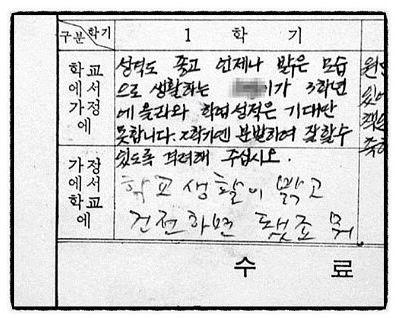 구분 학기
1 학 기
학교
에서
가정
에
성덕도 좋고 언제나 밝은 모습
으로 생활하는 이가 3학년
에 올라와 학업성적은 기대만
못합니다. 2학기엔 분발하여 잘할수
있도록 격려해 주십시오.
가정
에서
학교
에
학교 생활이 밝고
건전하면 됐죠 뭐.
수 료